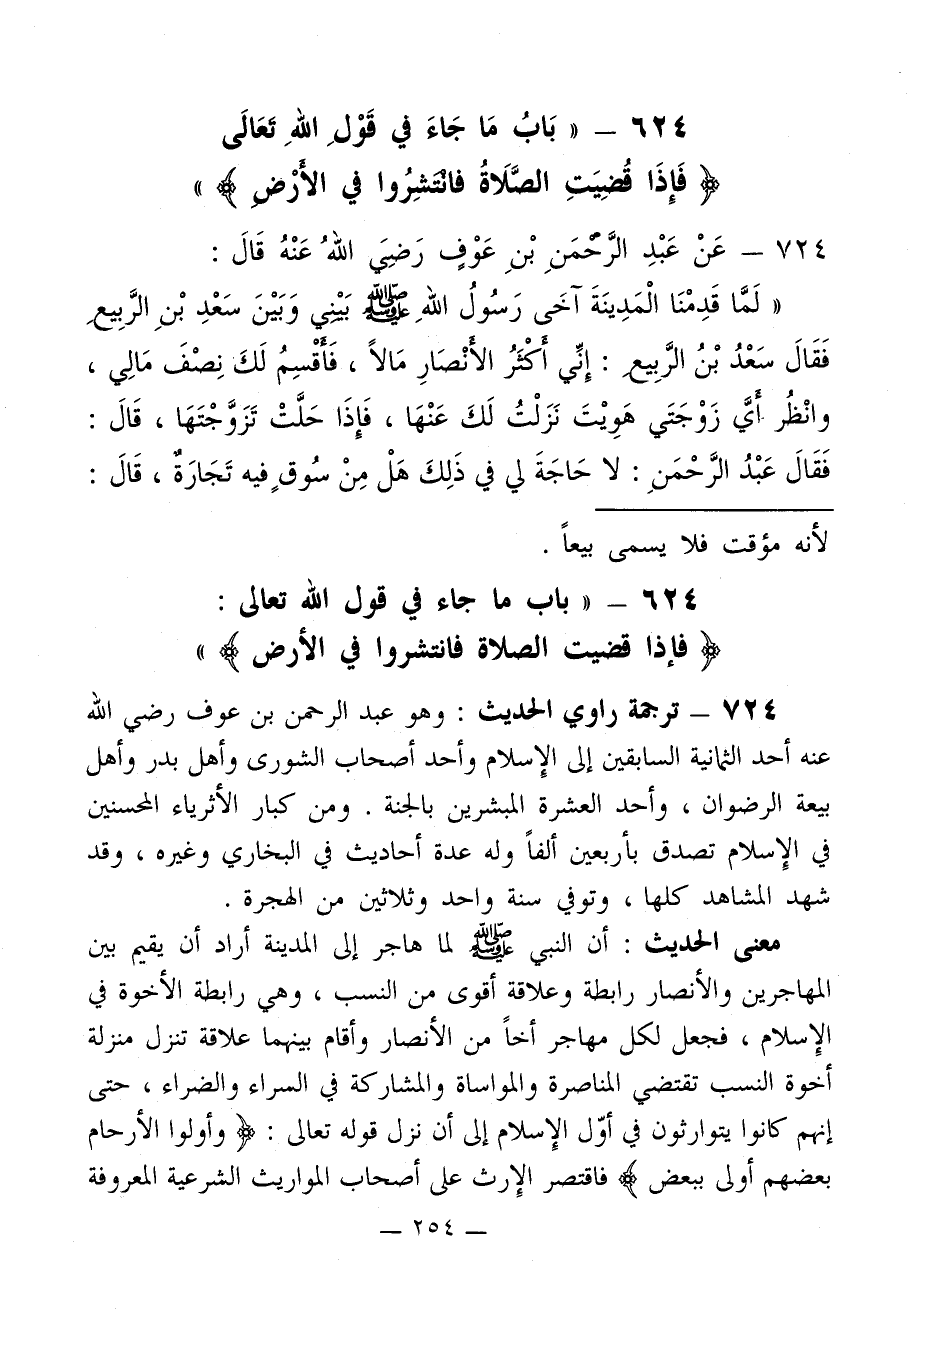 ٦٢٤ – « بَابُ مَا جَاءَ في قَوْلِ اللهِ تَعَالَى
﴿ فَإِذَا قُضِيَتِ الصَّلَاةُ فانْتَشِرُوا في الأَرْضِ ﴾ »
٧٢٤ – عَنْ عَبْدِ الرَّحْمَنِ بْنِ عَوْفٍ رَضِيَ اللهُ عَنْهُ قَالَ :
« لَمَّا قَدِمْنَا الْمَدِينَةَ آخَى رَسُولُ اللهِ ﷺ بَيْنِي وَبَيْنَ سَعْدِ بْنِ الرَّبِيعِ
فَقَالَ سَعْدُ بْنُ الرَّبِيعِ : إِنِّي أَكْثَرُ الأَنْصَارِ مَالاً ، فَأَقْسِمُ لَكَ نِصْفَ مَالِي ،
وانْظُر أَيَّ زَوْجَتَي هَوِيْتَ نَزَلْتُ لَكَ عَنْهَا ، فَإِذَا حَلَّتْ تَزَوَّجْتَهَا ، قَالَ :
فَقَالَ عَبْدُ الرَّحْمَنِ : لا حَاجَةَ لي في ذَلِكَ هَلْ مِنْ سُوقٍ فيه تَجَارَةٌ ، قَالَ :
لأنه مؤقت فلا يسمى بيعاً .
٦٢٤ – « باب ما جاء في قول الله تعالى :
﴿ فإذا قضيت الصلاة فانتشروا في الأرض ﴾ »
٧٢٤ – ترجمة راوي الحديث : وهو عبد الرحمن بن عوف رضي الله
عنه أحد الثمانية السابقين إلى الإسلام وأحد أصحاب الشورى وأهل بدر وأهل
بيعة الرضوان ، وأحد العشرة المبشرين بالجنة . ومن كبار الأثرياء المحسنين
في الإسلام تصدق بأربعين ألفاً وله عدة أحاديث في البخاري وغيره ، وقد
شهد المشاهد كلها ، وتوفي سنة واحد وثلاثين من الهجرة .
معنى الحديث : أن النبي ﷺ لما هاجر إلى المدينة أراد أن يقيم بين
المهاجرين والأنصار رابطة وعلاقة أقوى من النسب ، وهي رابطة الأخوة في
الإسلام ، فجعل لكل مهاجر أخاً من الأنصار وأقام بينهما علاقة تنزل منزلة
أخوة النسب تقتضي المناصرة والمواساة والمشاركة في السراء والضراء ، حتى
إنهم كانوا يتوارثون في أوّل الإسلام إلى أن نزل قوله تعالى : ﴿ وأولوا الأرحام
بعضهم أولى ببعض ﴾ فاقتصر الإرث على أصحاب المواريث الشرعية المعروفة
– ٢٥٤ –